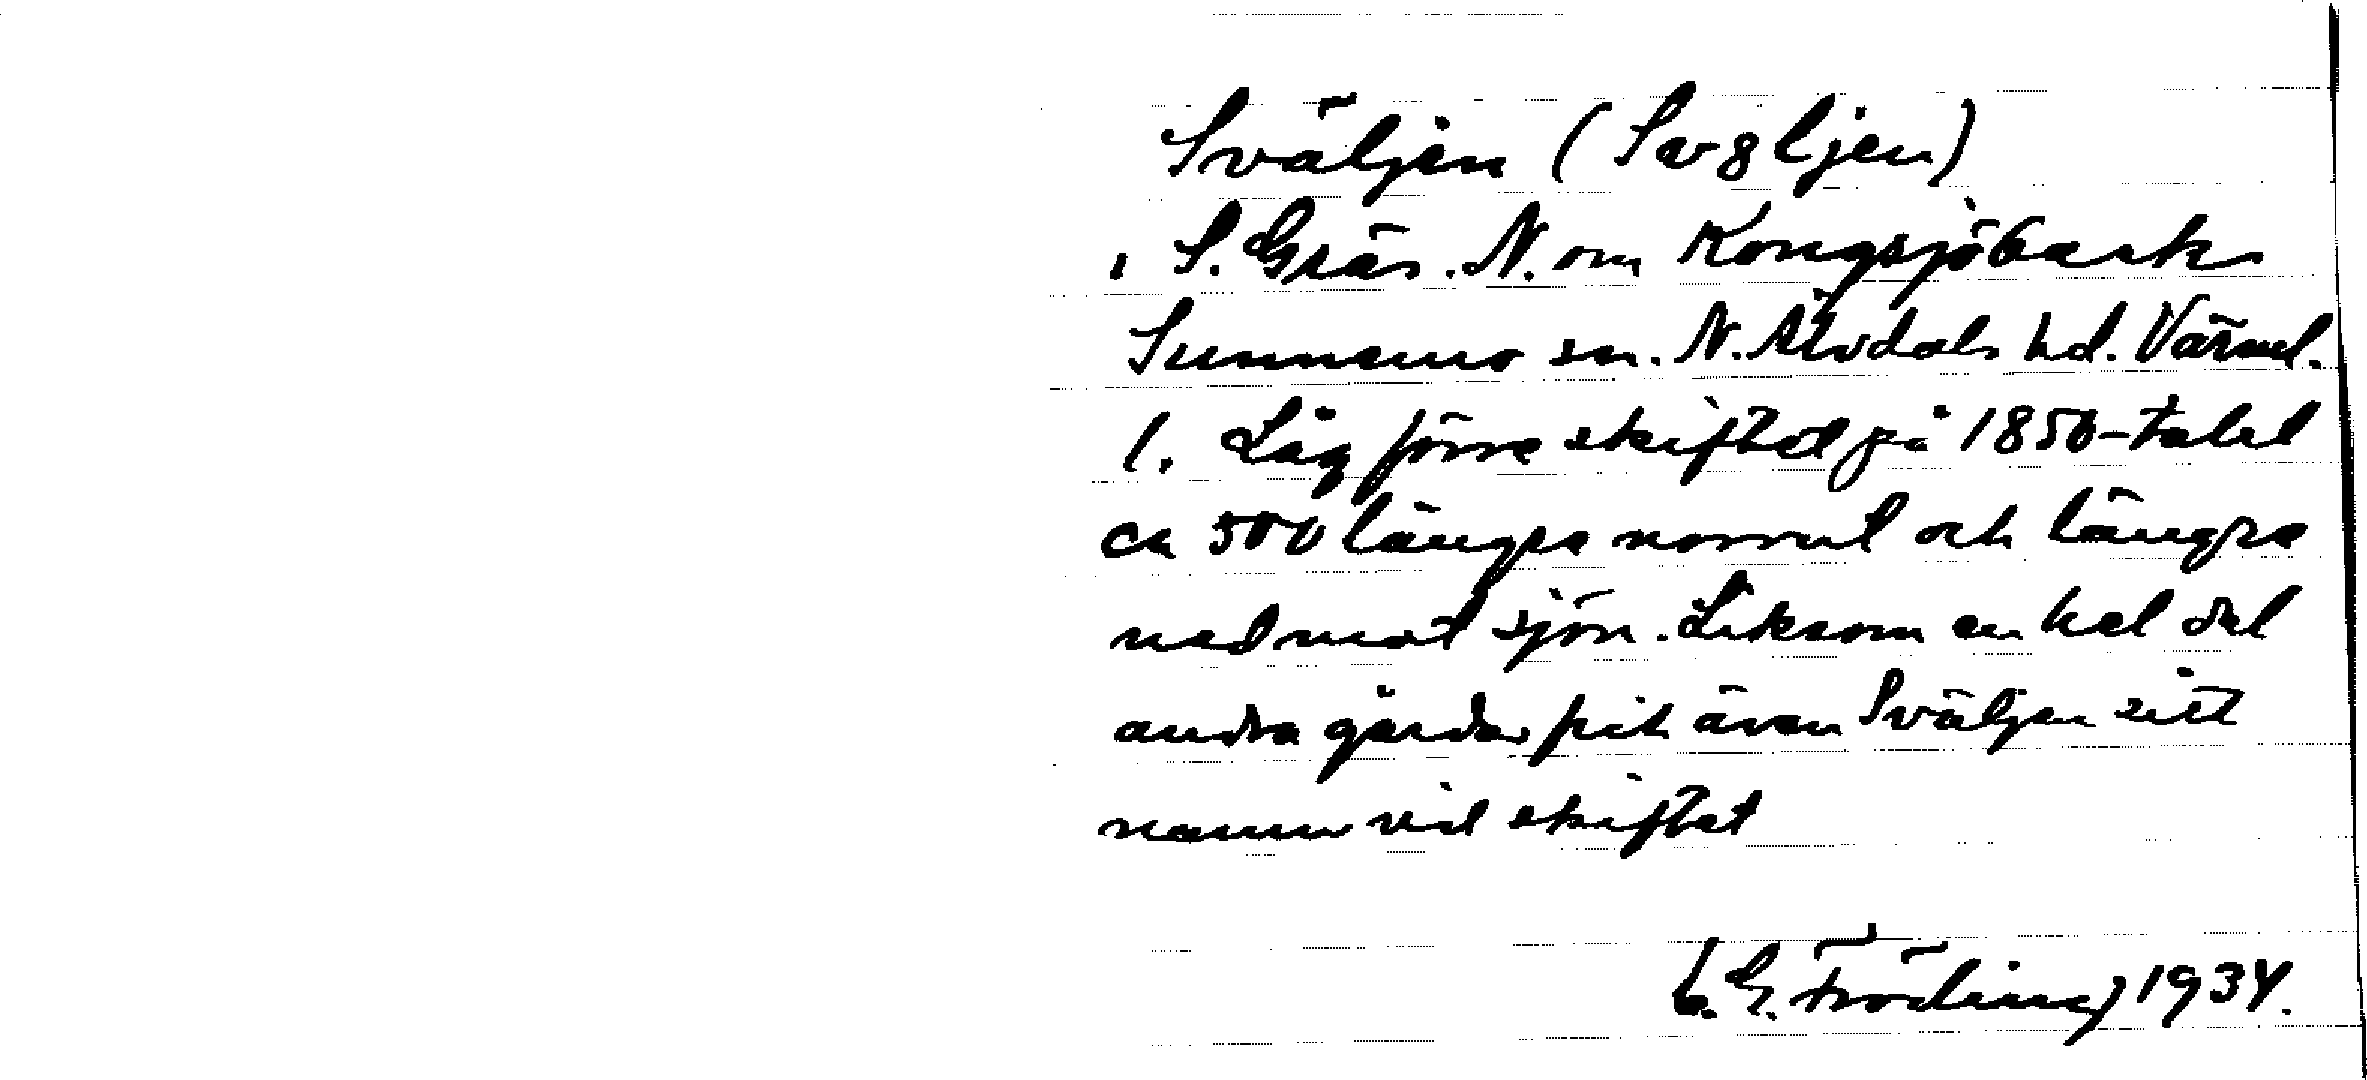 Sväljen (Sv8ljen)
1 S. Gräs. N. om Kongsjöbacks
Sunnemo sn. N. Älvdals hd. Värml.
1. Låg förre skiftet på 1850-talet
ca 500 längre norrut och längre
ned mot sjön. Liksom en hel del
andra gårdar fick även Sväljen sitt
namn vid skiftet
G. Fröding 1934.